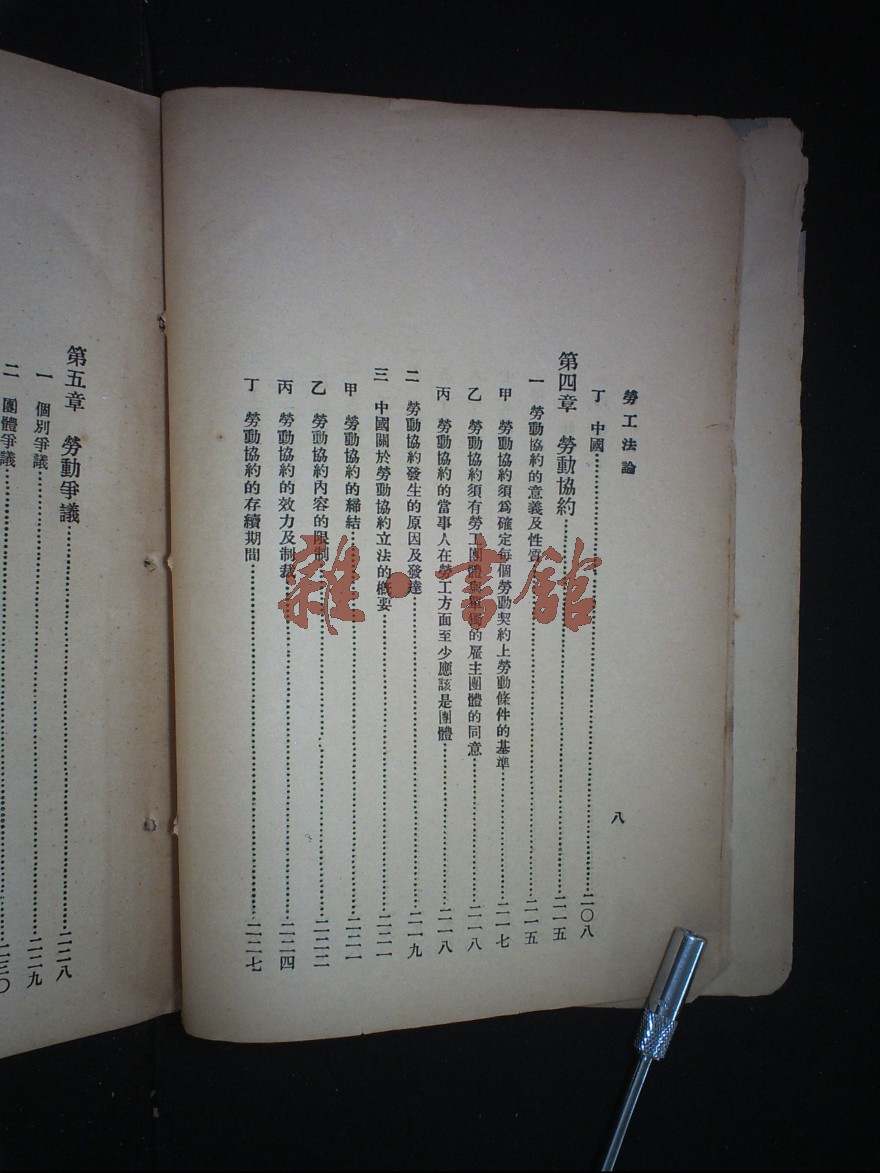 勞工法論
八
丁　中國……二〇八
第四章　勞動協約……二一五
一　勞動協約的意義及性質……二一五
甲　勞動協約須爲確定每個勞動契約上勞動條件的基準……二一七
乙　勞動協約須有勞工團體與單獨的雇主團體的同意……二一八
丙　勞動協約的當事人在勞工方面至少應該是團體……二一八
二　勞動協約發生的原因及發達……二一九
三　中國關於勞動協約立法的概要……二二一
甲　勞動協約的締結……二二一
乙　勞動協約內容的限制……二二二
丙　勞動協約的效力及制裁……二二四
丁　勞動協約的存續期間……二二七
第五章　勞動爭議……二二八
一　個別爭議……二二九
二　團體爭議……二三〇
雜·書館